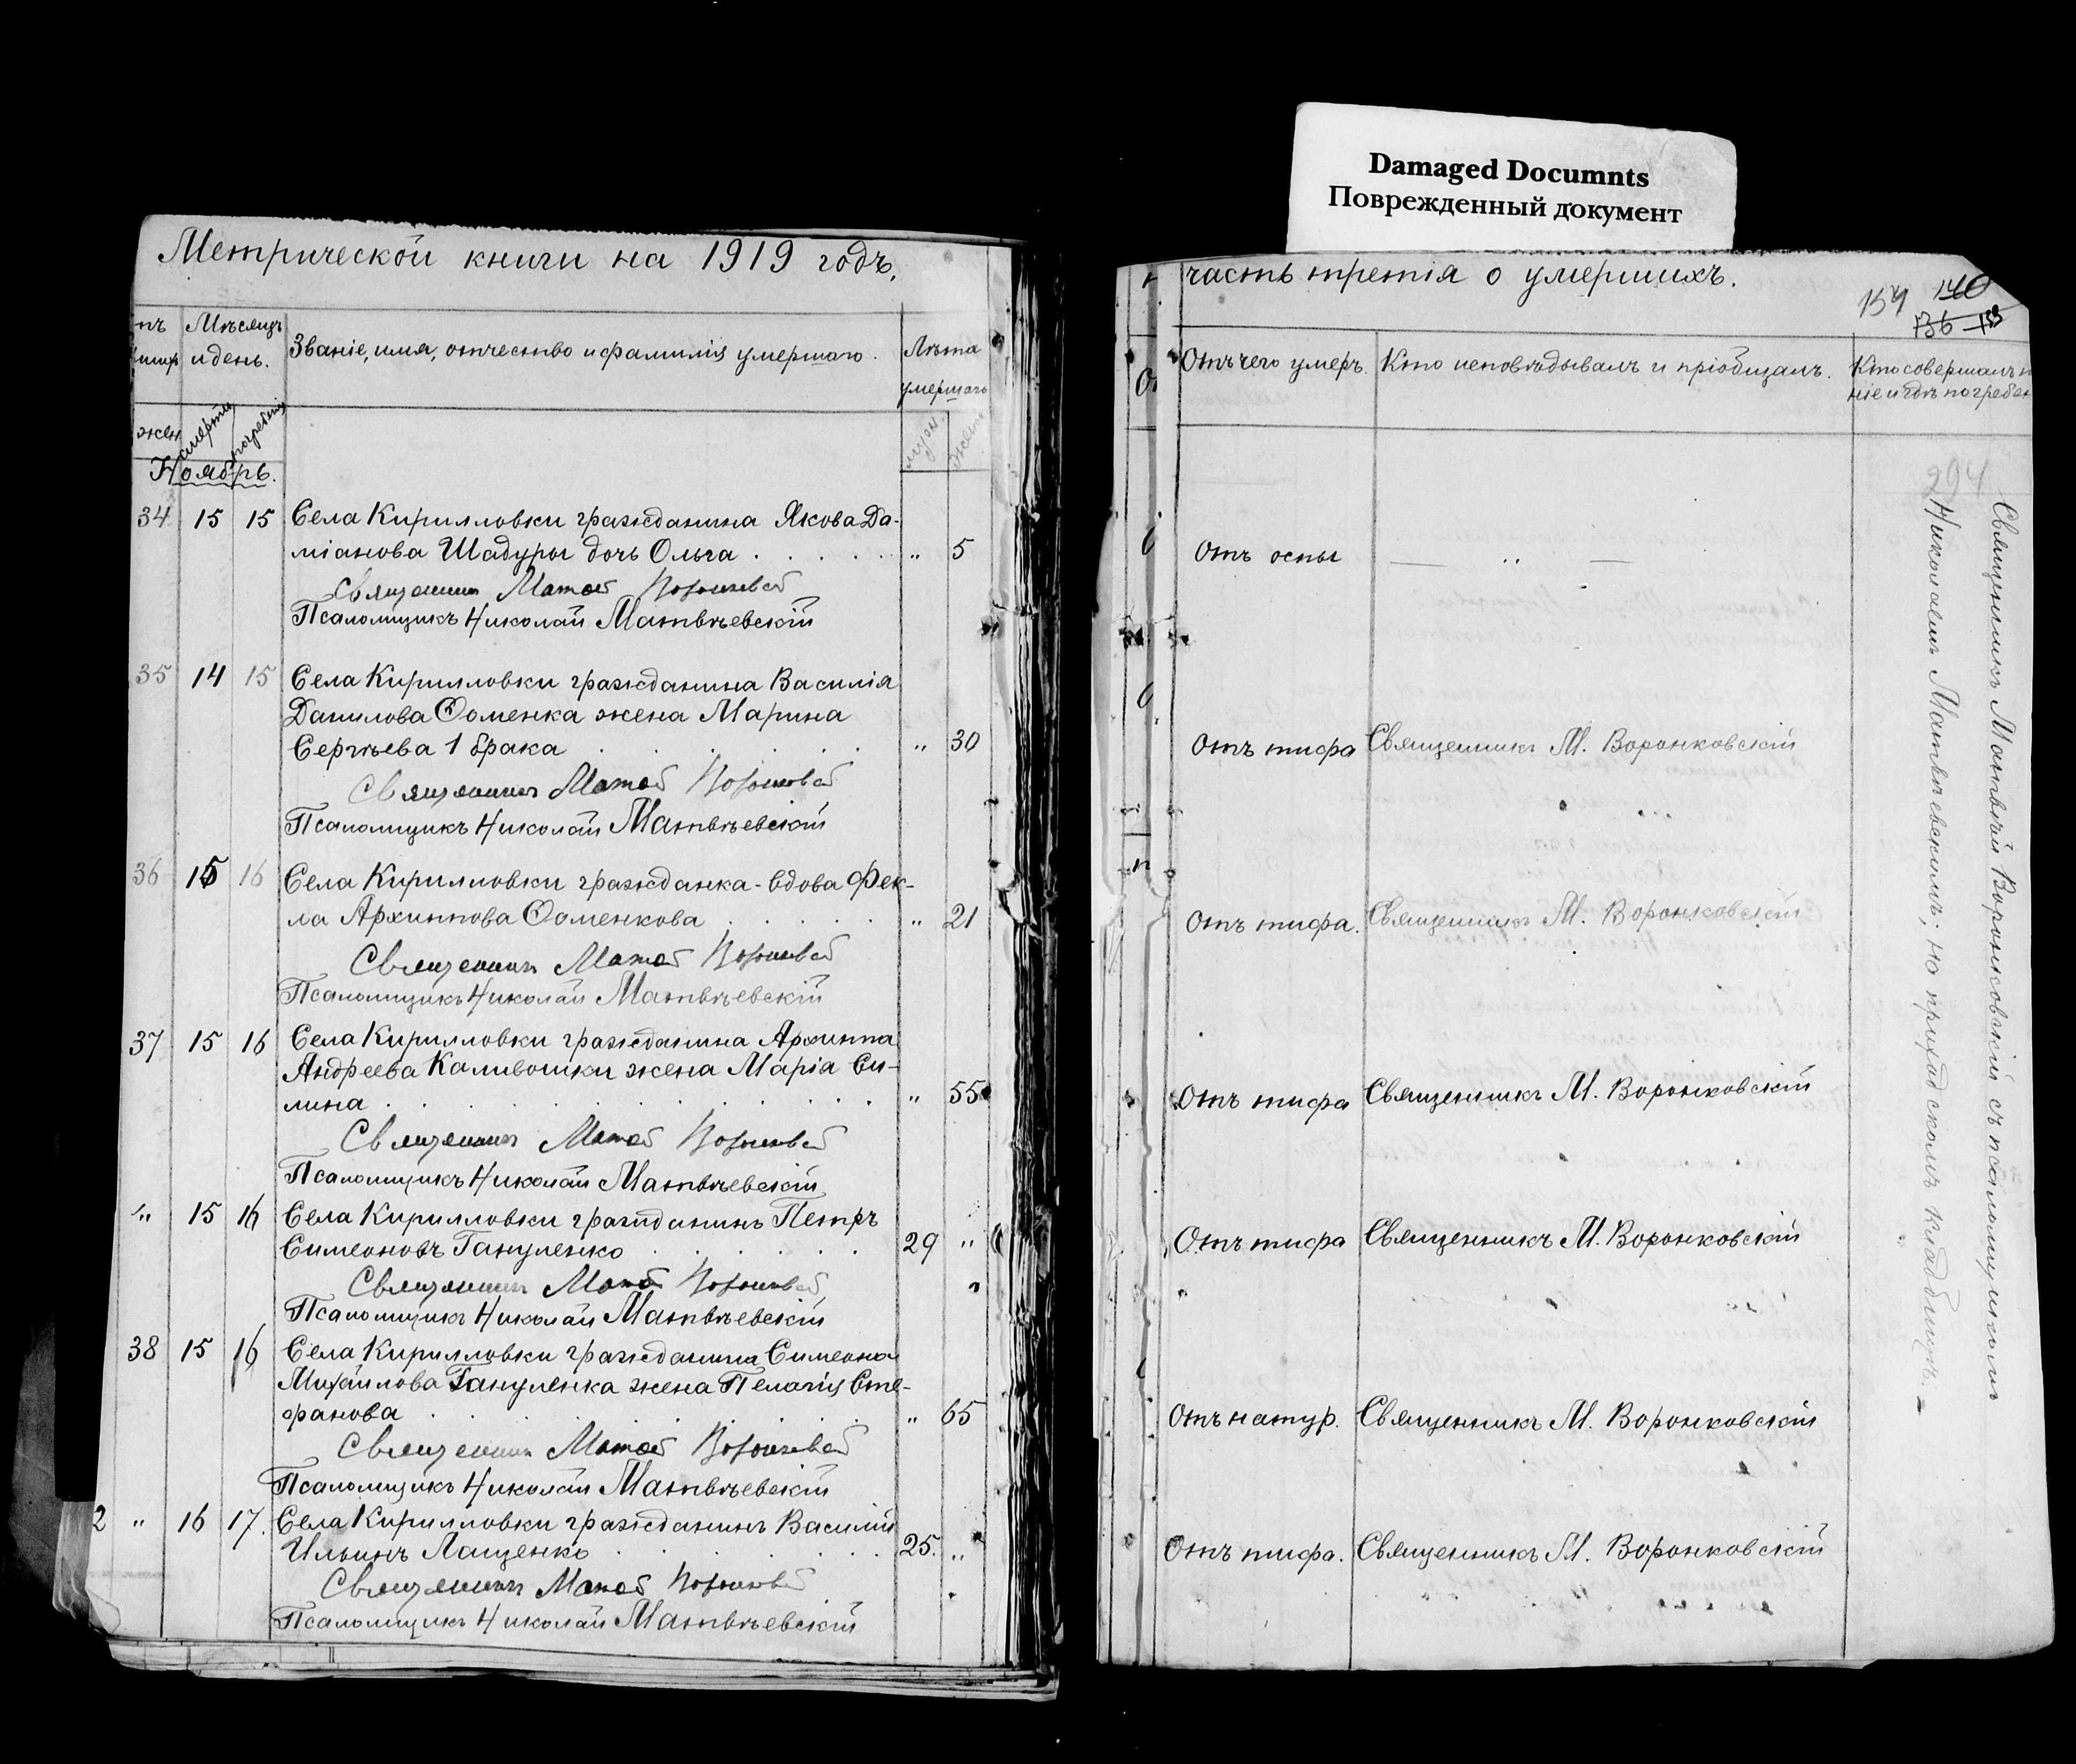 Damaged Documnts
Поврежденный документ
Метрической книги на 1919 годъ.
Мѣсяцъ и день.
Званіе, имя, отчество и фамилія умершаго.
Лѣта умершаго
жен
смерти
погребенія
муж.
жен.
Ноябрь.
34 15 15 Села Кирилловки гражданина Якова Да-
міанова Шадуры дочь Ольга . . . . . " 5
Священникъ
Псаломщикъ Николай Матвѣевскій
35 14 15 Села Кирилловки гражданина Василія
Данилова Ѳоменка жена Марина
Сергѣева 1 брака . . . . . " 30
Священникъ
Псаломщикъ Николай Матвѣевскій
36 15 16 Села Кирилловки гражданка-вдова Фек-
ла Архиппова Ѳоменкова . . . . . " 21
Священникъ
Псаломщикъ Николай Матвѣевскій
37 15 16 Села Кирилловки гражданина Архиппа
Андреева Каливошки жена Марія Си-
лина . . . . . " 55
Священникъ
Псаломщикъ Николай Матвѣевскій
" 15 16 Села Кирилловки гражданинъ Петръ
Симеоновъ Гануленко . . . . . 29 "
Священникъ
Псаломщикъ Николай Матвѣевскій
38 15 16 Села Кирилловки гражданина Симеона
Михайлова Гануленка жена Пелагія Сте-
фанова . . . . . " 65
Священникъ
Псаломщикъ Николай Матвѣевскій
2 " 16 17. Села Кирилловки гражданинъ Василій
Ильинъ Лащенко . . . . . 25. "
Священникъ
Псаломщикъ Николай Матвѣевскій
часть третія о умершихъ.
154 140
136 153
Отъ чего умеръ.
Кто исповѣдывалъ и пріобщалъ.
Кто совершалъ п
ніе и гдѣ погребен
294
Отъ оспы — " —
Отъ тифа Священникъ М. Воронковскій
Отъ тифа. Священникъ М. Воронковскій
Отъ тифа Священникъ М. Воронковскій
Отъ тифа Священникъ М. Воронковскій
Отъ натур. Священникъ М. Воронковскій
Отъ тифа. Священникъ М. Воронковскій
Священникъ Матвѣй Воронковскій съ псаломщикомъ
Николаемъ Матвѣевскимъ; на приходскомъ кладбищѣ. –